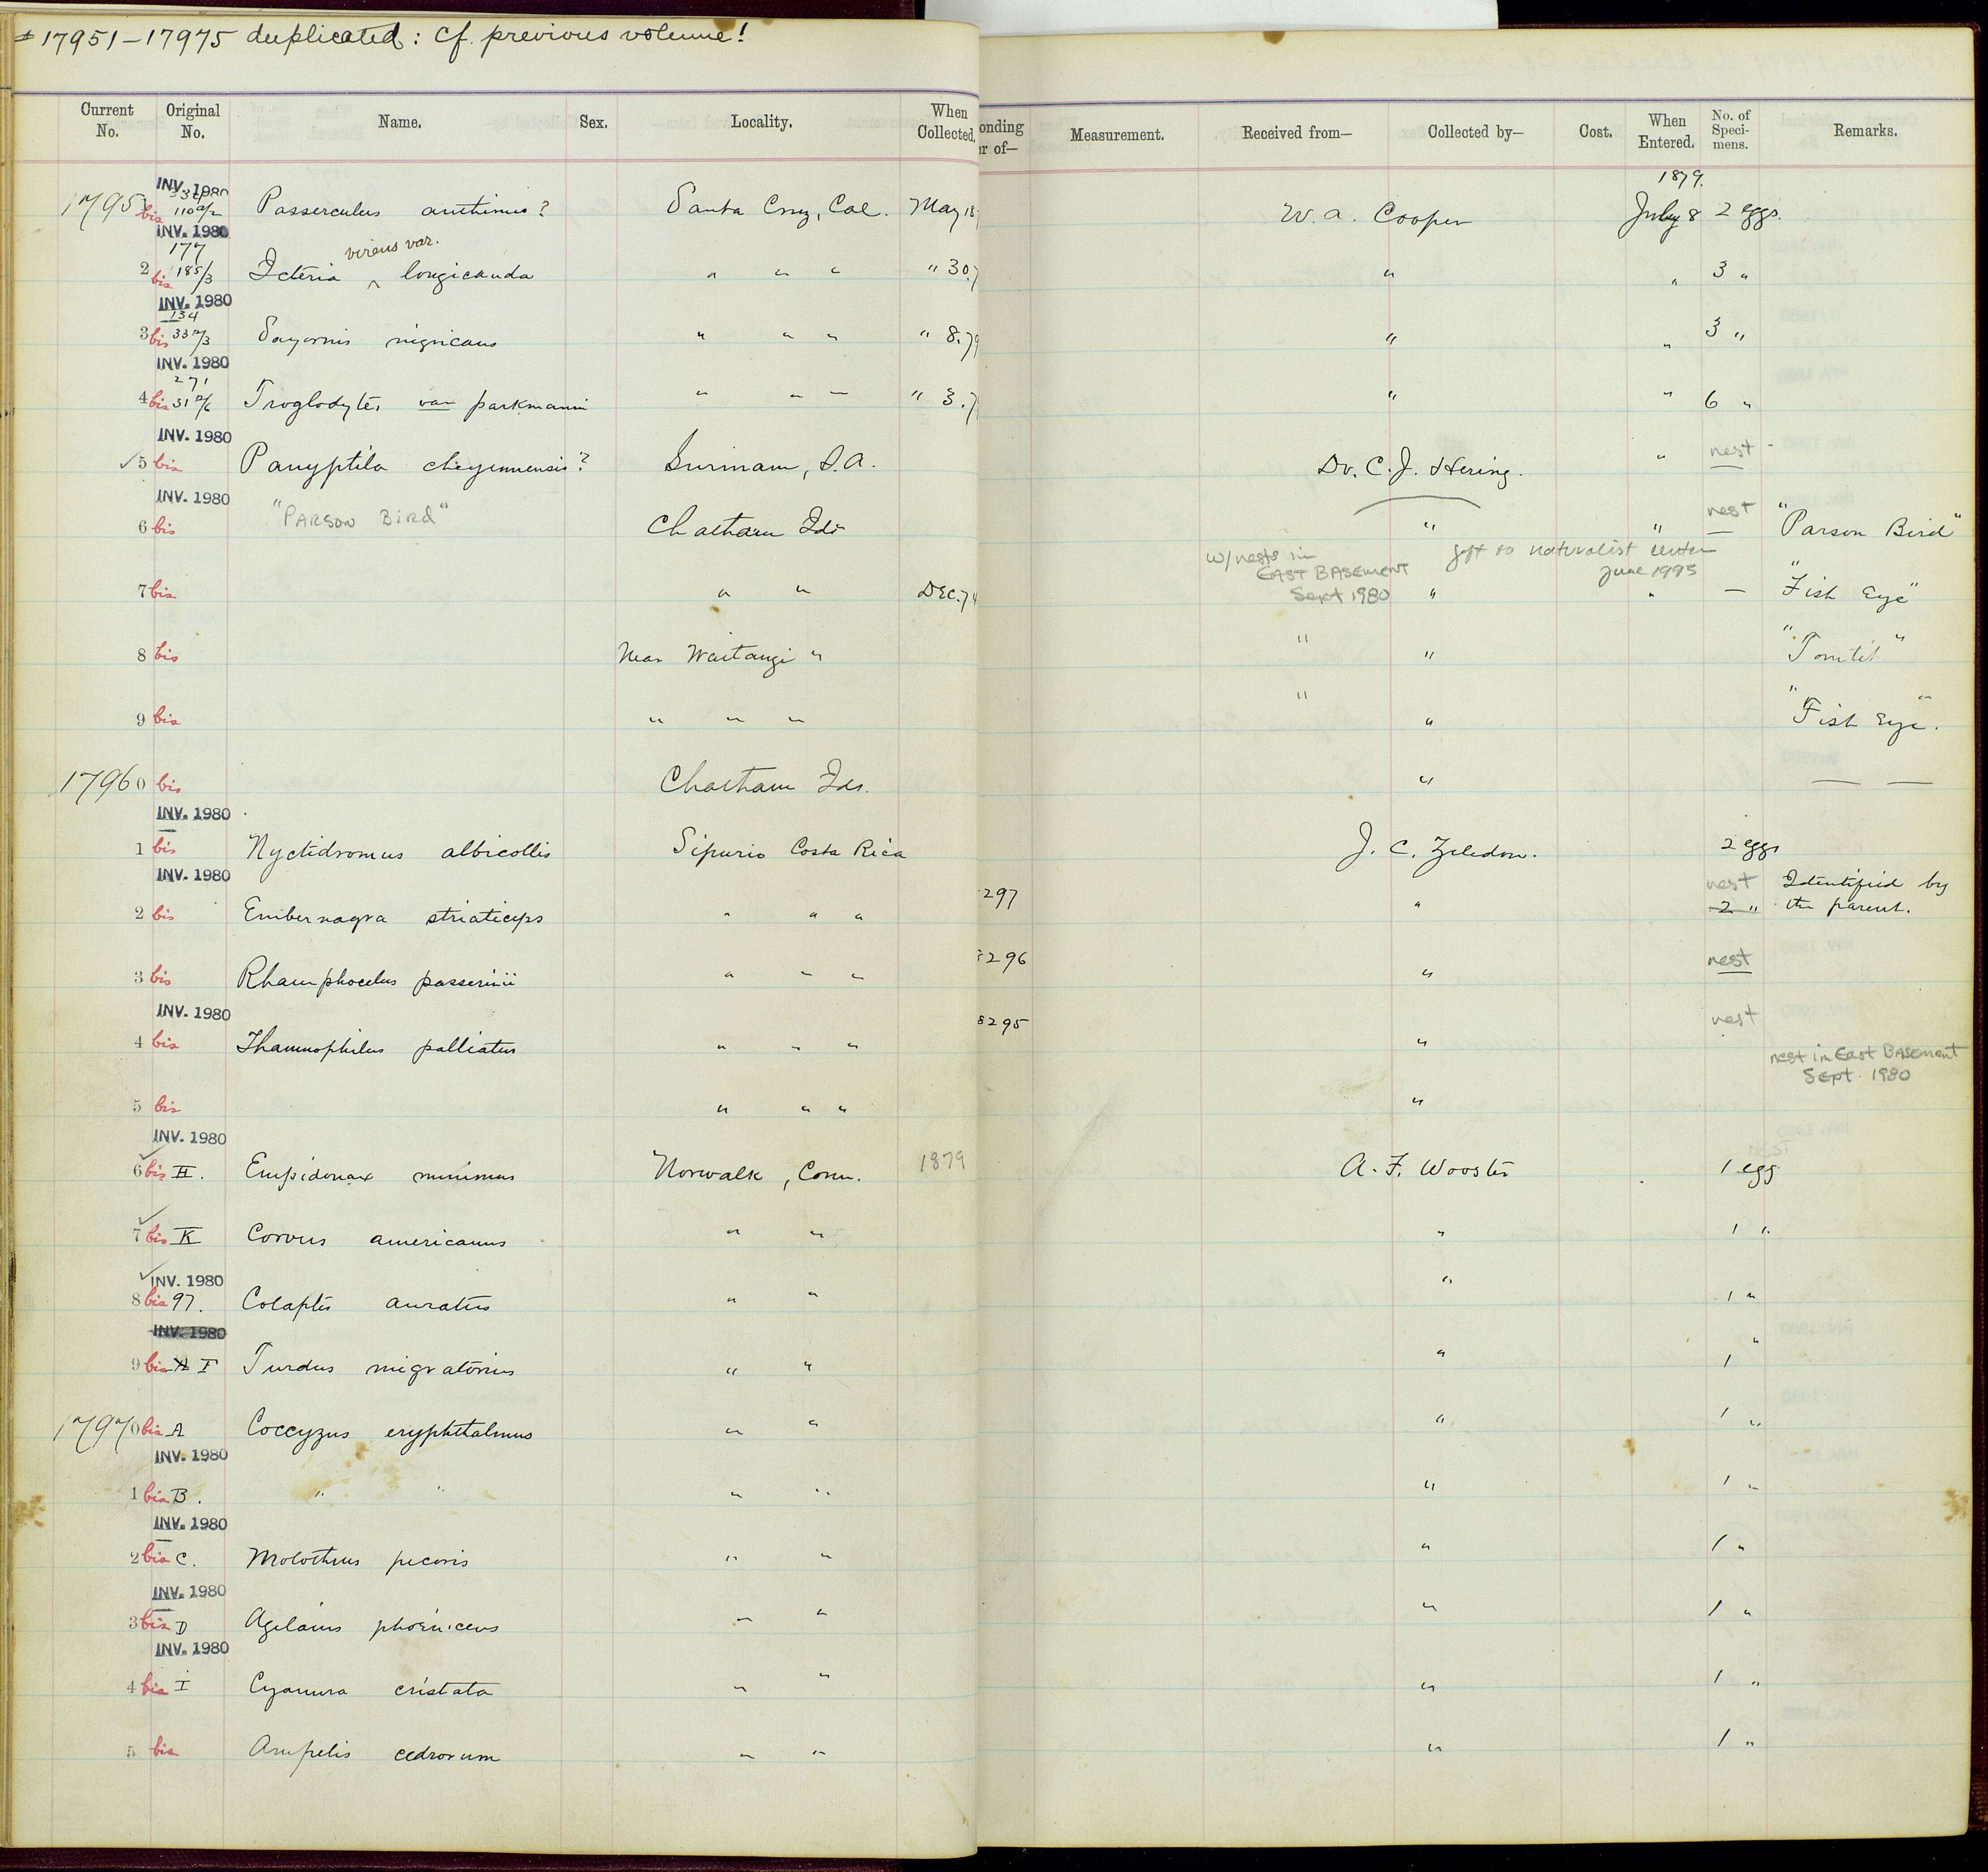 # 17951-17975 duplicated: cf. previous volume!
Current No. Original No. Name. Sex. Locality. When Collected. onding er of— Measurement. Received from— Collected by— Cost. When Entered. No. of Speci-mens. Remarks.
1879.
INV. 1980
17951 bis 110 a/2 Passerculus anthinus? Santa Cruz, Cal. May 18 W. A. Cooper July 8 2 eggs.
INV. 1980
177
virens var.
2 bis 185/3 Icteria ^ longicauda " " " " 30.7 " " 3 "
INV. 1980
134
3 bis 33 a/3 Sayornis nigricans " " " " 8.79 " " 3 "
INV. 1980
271
4 bis 31 a/6 Troglodytes var parkmanni " " — " 3.7 " " 6 "
INV. 1980
✓ 5 bis Panyptila cheyennensis? Surinam, S.A. Dr. C. J. Hering. " nest
INV. 1980
6 bis "PARSON BIRD" Chatham Ids " " nest — "Parson Bird"
w/nests in EAST BASEMENT Sept 1980
gift to naturalist center June 1995
7 bis " " DEC. 74 " " — "Fish Eye"
8 bis Near Waitangi " " " "Tomtit"
9 bis " " " " " "Fish Eye".
17960 bis Chatham Ids. " — —
INV. 1980
1 bis Nyctidromus albicollis Sipurio Costa Rica J. C. Zeledon. 2 eggs
INV. 1980
2 bis Embernagra striaticeps " " " 297 " nest 2 " Identified by the parent.
3 bis Rhamphocelus passerinii " " " 296 " nest
INV. 1980
4 bis Thamnophilus palliatus " " " 8295 " nest
nest in East BASEMENT
Sept. 1980
5 bis " " " "
INV. 1980
✓ 6 bis H. Empidonax minimus Norwalk, Conn. 1879 A. F. Wooster NEST 1 egg
✓ 7 bis K Corvus americanus " " " 1 "
✓ INV. 1980
8 bis 97. Colaptes auratus " " " 1 "
INV. 1980
9 bis F Turdus migratorius " " " 1 "
17970 bis A Coccyzus eryphthalmus " " " 1 "
INV. 1980
1 bis B. " " " " " 1 "
INV. 1980
2 bis C. Molothrus pecoris " " " 1 "
INV. 1980
3 bis D Agelaius phoeniceus " " " 1 "
INV. 1980
4 bis I Cyanura cristata " " " 1 "
5 bis Ampelis cedrorum " " " 1 "